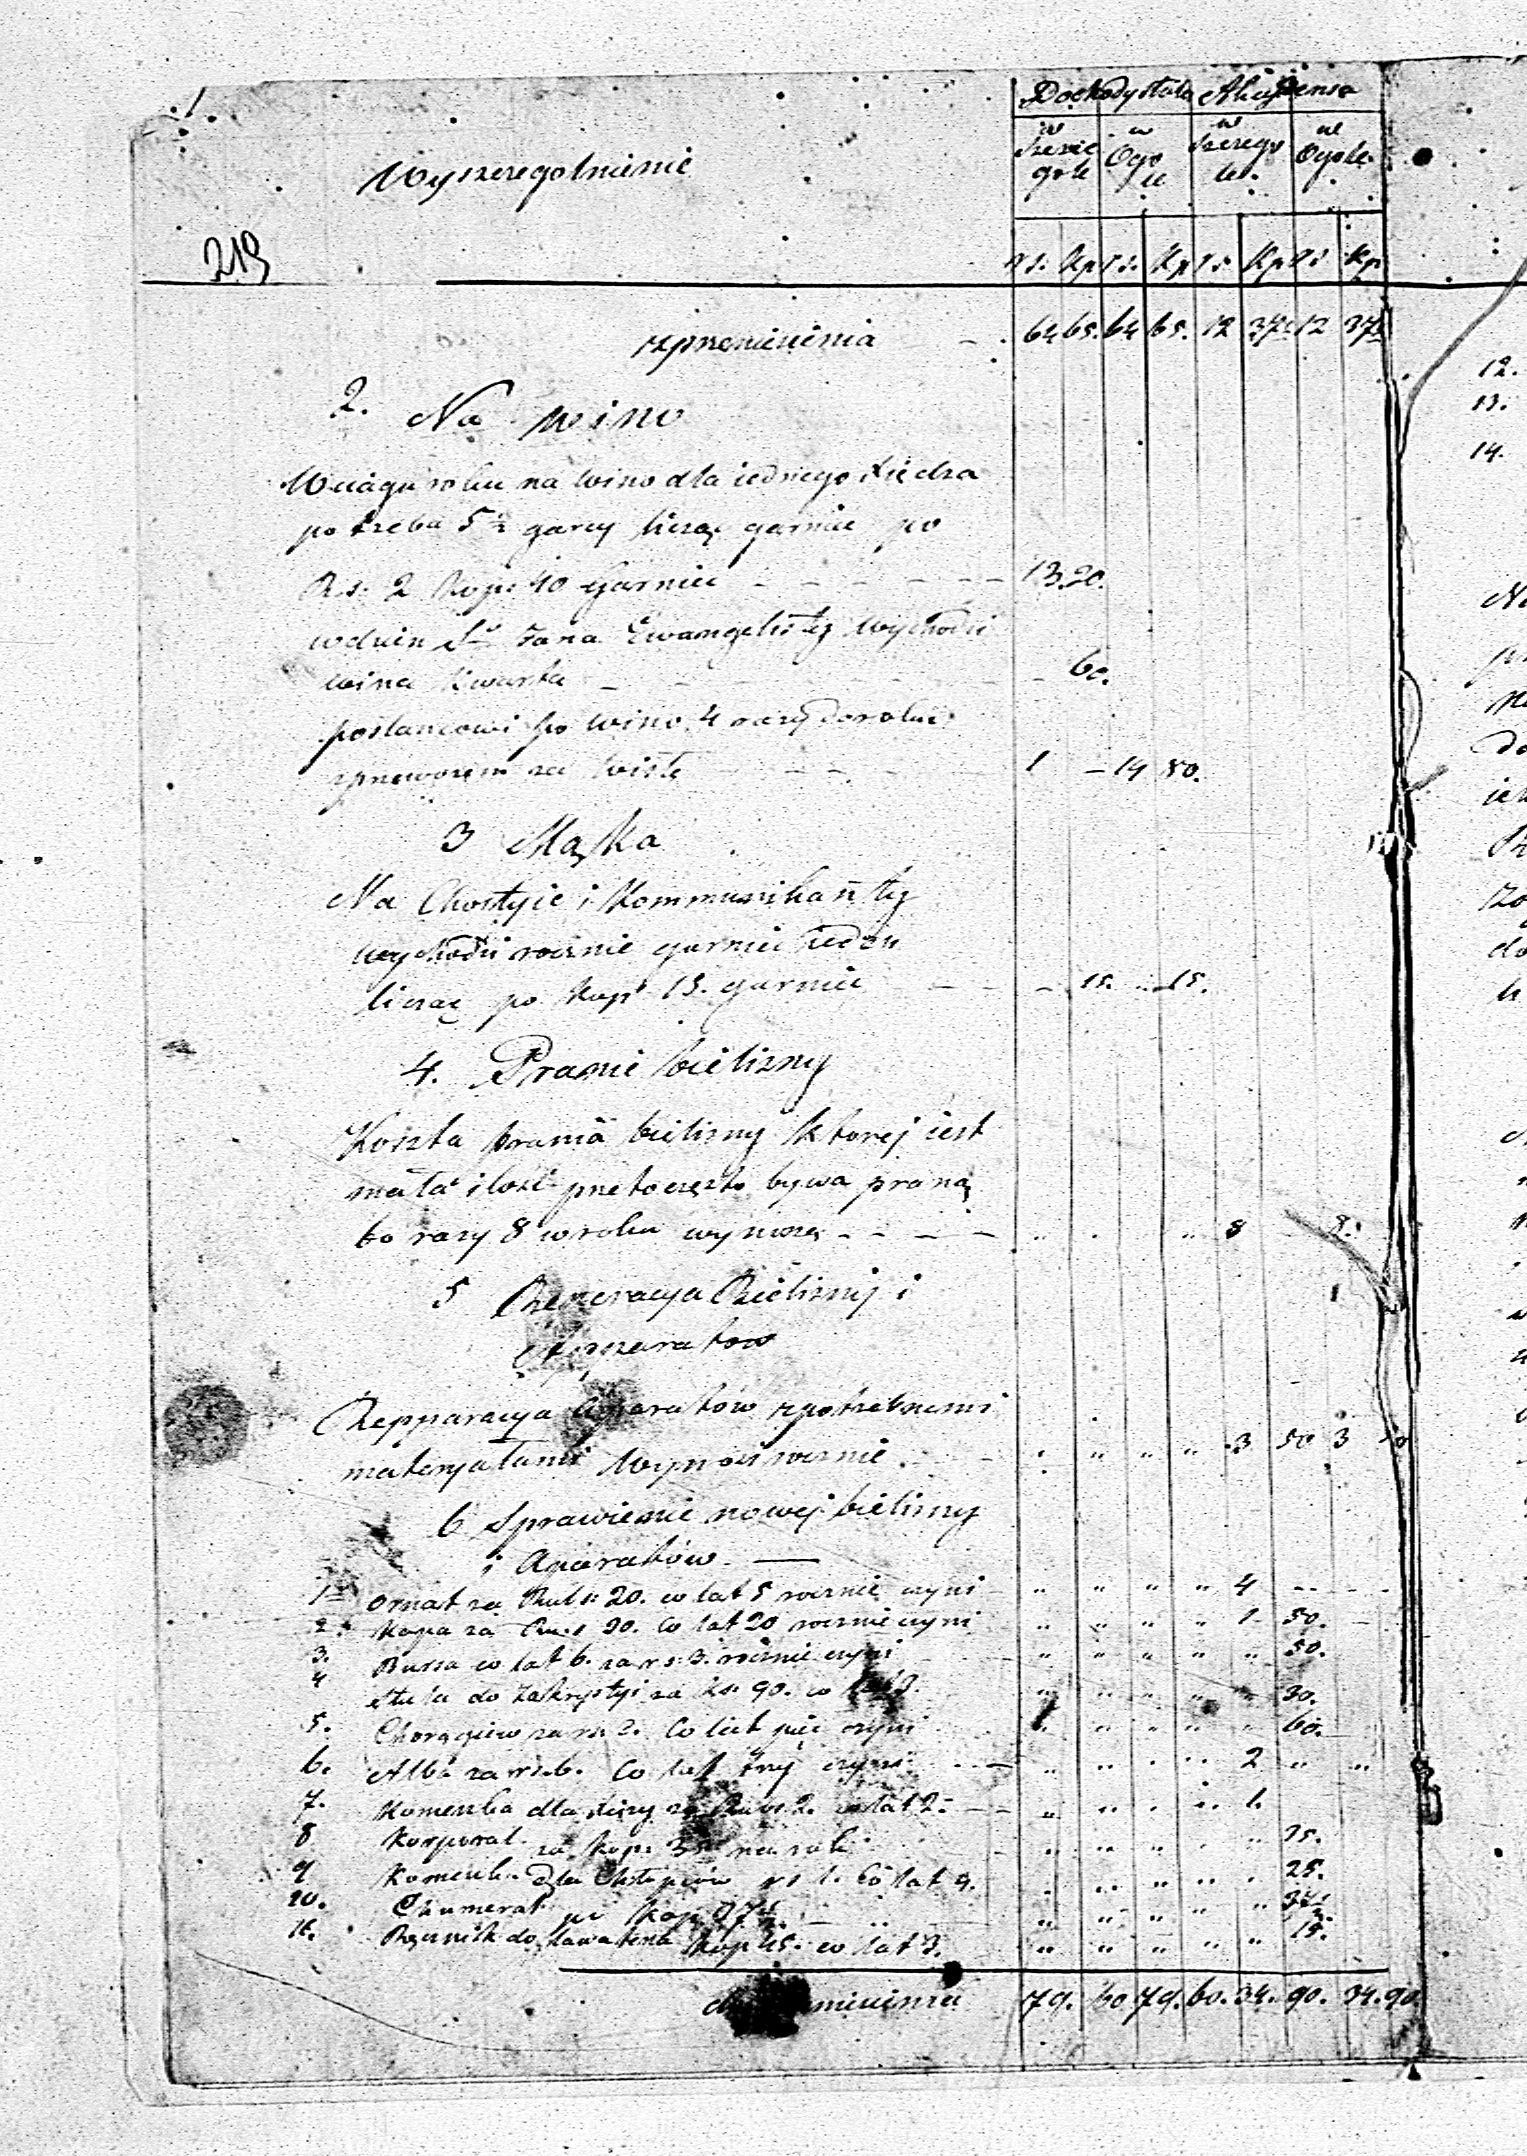 Dochody stałe Akcydensa
Wyszczegolnienie
w Szcze gole
w Ogo le
w szczego le.
w Ogole.
219
rs. Kp rs. Kp rs Kp rs Kp
z przeniesienia 64 65. 64 65. 12 37½ 12 37½
2. Na wino
W ciągu roku na wino dla iednego Xiędza
potrzeba 5½ garcy licząc garniec po
R.s. 2 kop: 40 Garniec - - - - - - 13. 20.
w dzien S° Jana Ewangelisty Wychodzi
wina kwarta - 60.
posłancowi po wino 4 razy do roku
z przewozem za wisłę 1 - 14 80.
3 Mąka
Na Chostyie i Kommunikanty
wychodzi rocznie garniec ieden
licząc po Kop 15. garniec - - - 15. " 15.
4. Pranie bielizny
Koszta prania bielizny ktorej iest
mała ilość przeto często bywa praną
bo razy 8 w roku wynoszą - - - - " . " 8 - 8.
5 Reperacya Bielizny i
Apparatow
Repparacya aparatów z potrzebnemi
materyałami Wynosi rocznie. " " " " 3 50 3 50
6 Sprawienie nowej bielizny
i Aparatów. —
1° ornat za Rub sr 20. co lat 5 rocznie czyni " " " " 4 - -
2° Kapa za Ru. s 30. Co lat 20 rocznie czyni " " " " 1 50.
3. Bursa co lat 6. za rs. 3. rocznie czyni " " " " " 50.
4 Stuła do Zakrystyi za ko. 90. co lat 3. " " " " " 30.
5. Chorągiew za rs. 2. Co lat pięć czyni " " " " " 60.
6. Alba za rs. 6. Co lat trzy czyni - - " " " " 2 " "
7. Komeszka dla xięży za Rub s. 2. co lat 2 - - " " " " 1.
8 Korporał za kop: 35 na rok " " " " " 35.
9 Komeszka dla Chłopców rs 1. Co lat 4. " " " " " 25.
10. Chumerał po Kop 37½ " " " " " 37½
11. Ręcznik do Lawaterza kop 45. co lat 3. " " " " " 15.
do przeniesienia 79. 60 79. 60. 34. 90. 34. 90.
12.
13.
14.